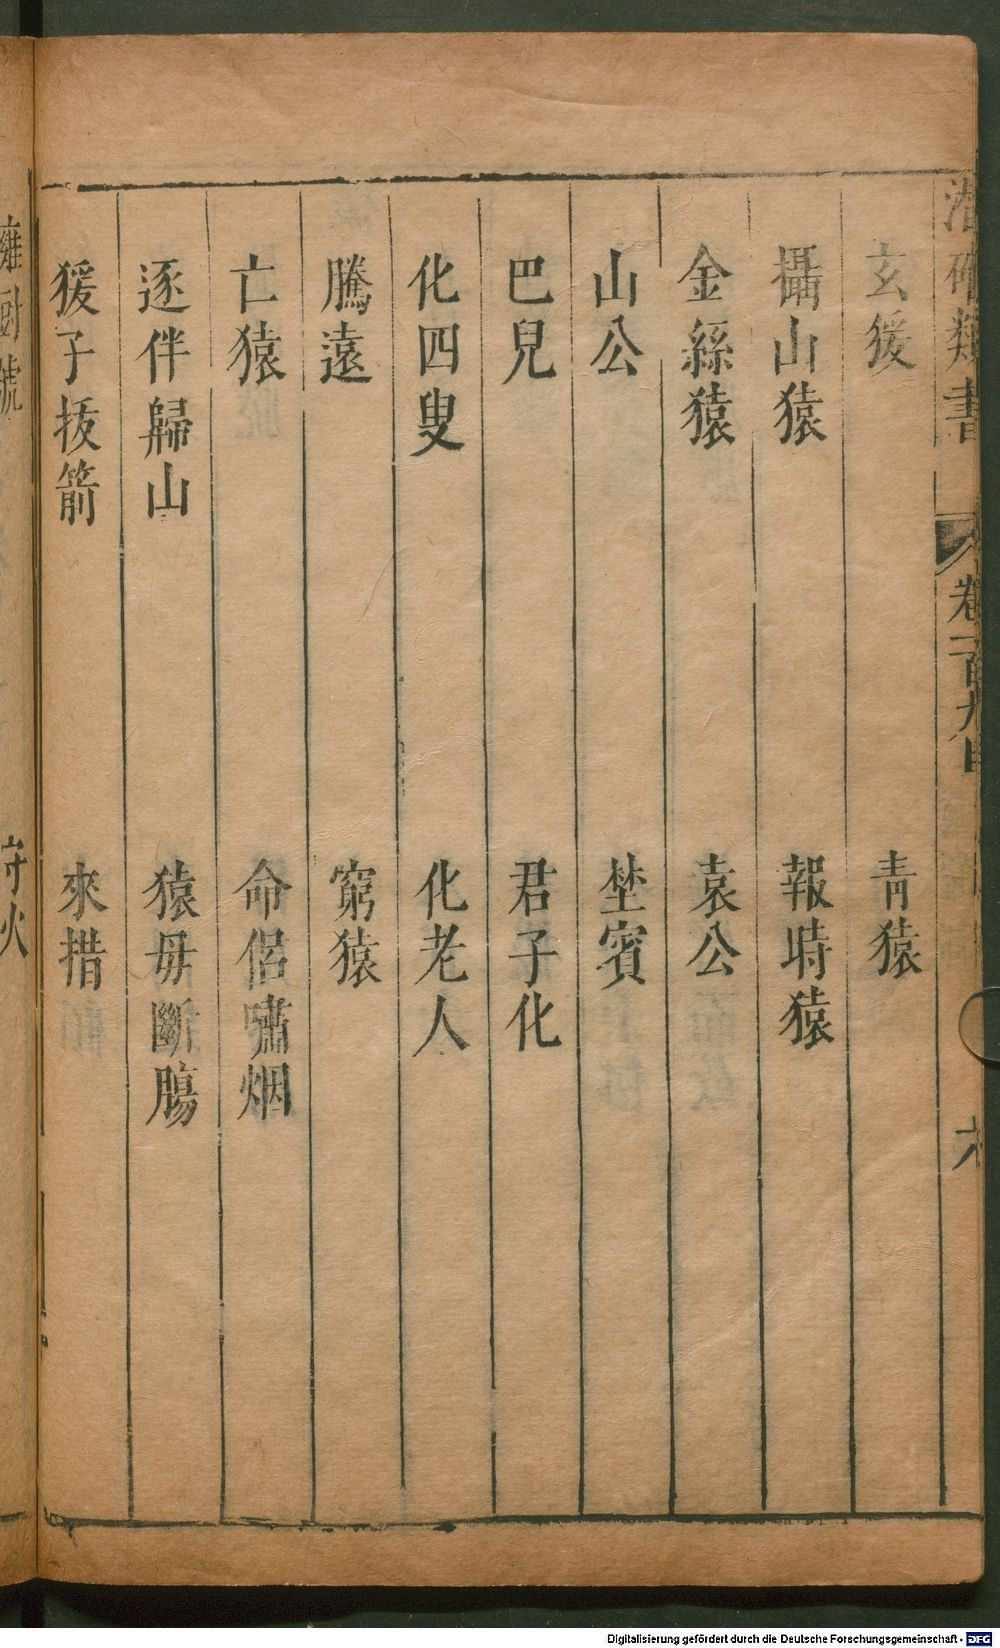 潛確類書 卷一百九目 六
玄猨 青猿
攝山猿 報時猿
金絲猿 袁公
山公 埜賓
巴兒 君子化
化四叟 化老人
騰遠 窮猿
亡猿 命侣嘯烟
逐伴歸山 猿毋斷膓
猨子拔箭 來措
雍厨號 守火
Digitalisierung gefördert durch die Deutsche Forschungsgemeinschaft - DFG